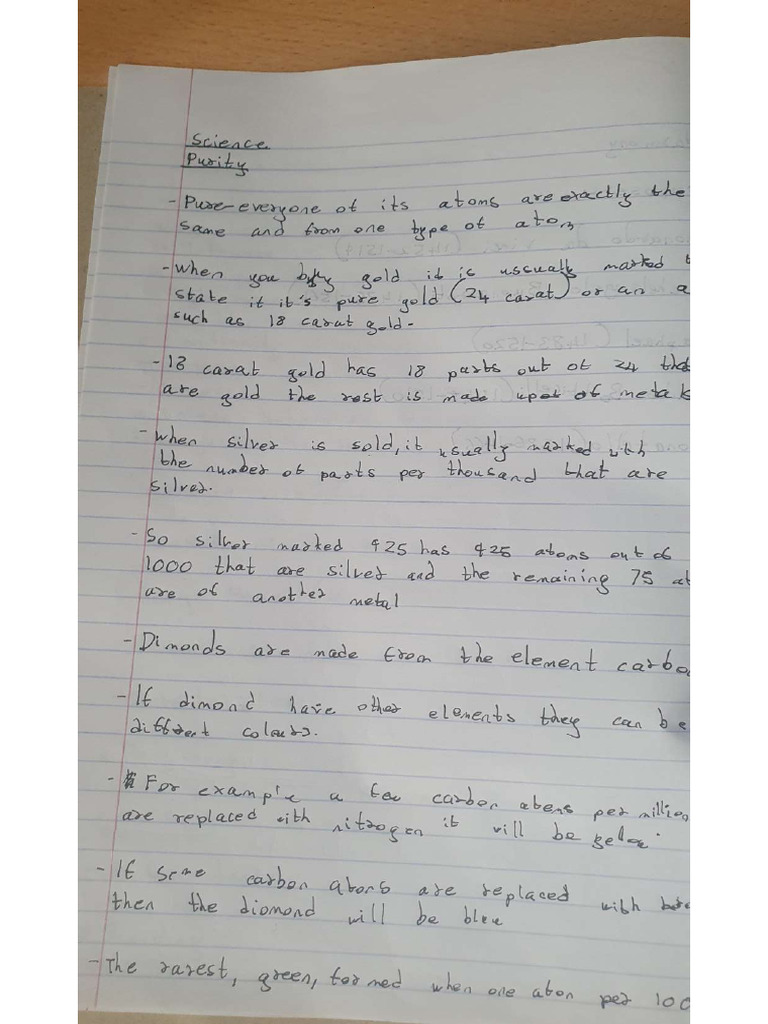 Science
Purity
- Pure-everyone of its atoms are exactly the
same and from one type of atom
- When you buy gold it is ussually marked
state if it's pure gold (24 carat) or an a
such as 18 carat gold.
- 18 carat gold has 18 parts out of 24 that
are gold the rest is made upof of metals
- When silver is sold, it usually marked with
the number of parts per thousand that are
silver.
- So silver marked 925 has 925 atoms out of
1000 that are silver and the remaining 75 at
are of another metal
- Dimonds are made from the element carbo
- If dimond have other elements they can be
different colours.
- For example a few carbon atoms per million
are replaced with nitrogen it will be
- If some carbon atoms are replaced with
then the diomond will be blue
- The rarest, green, formed when one atom per 100